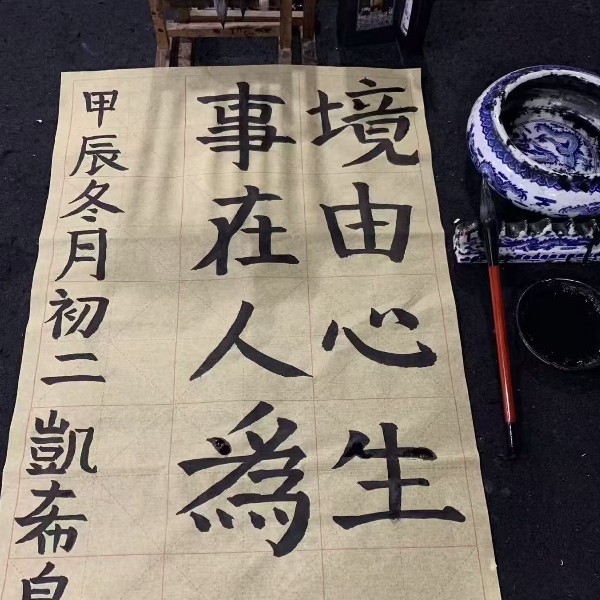 境由心生
事在人為
甲辰冬月初二 凱希